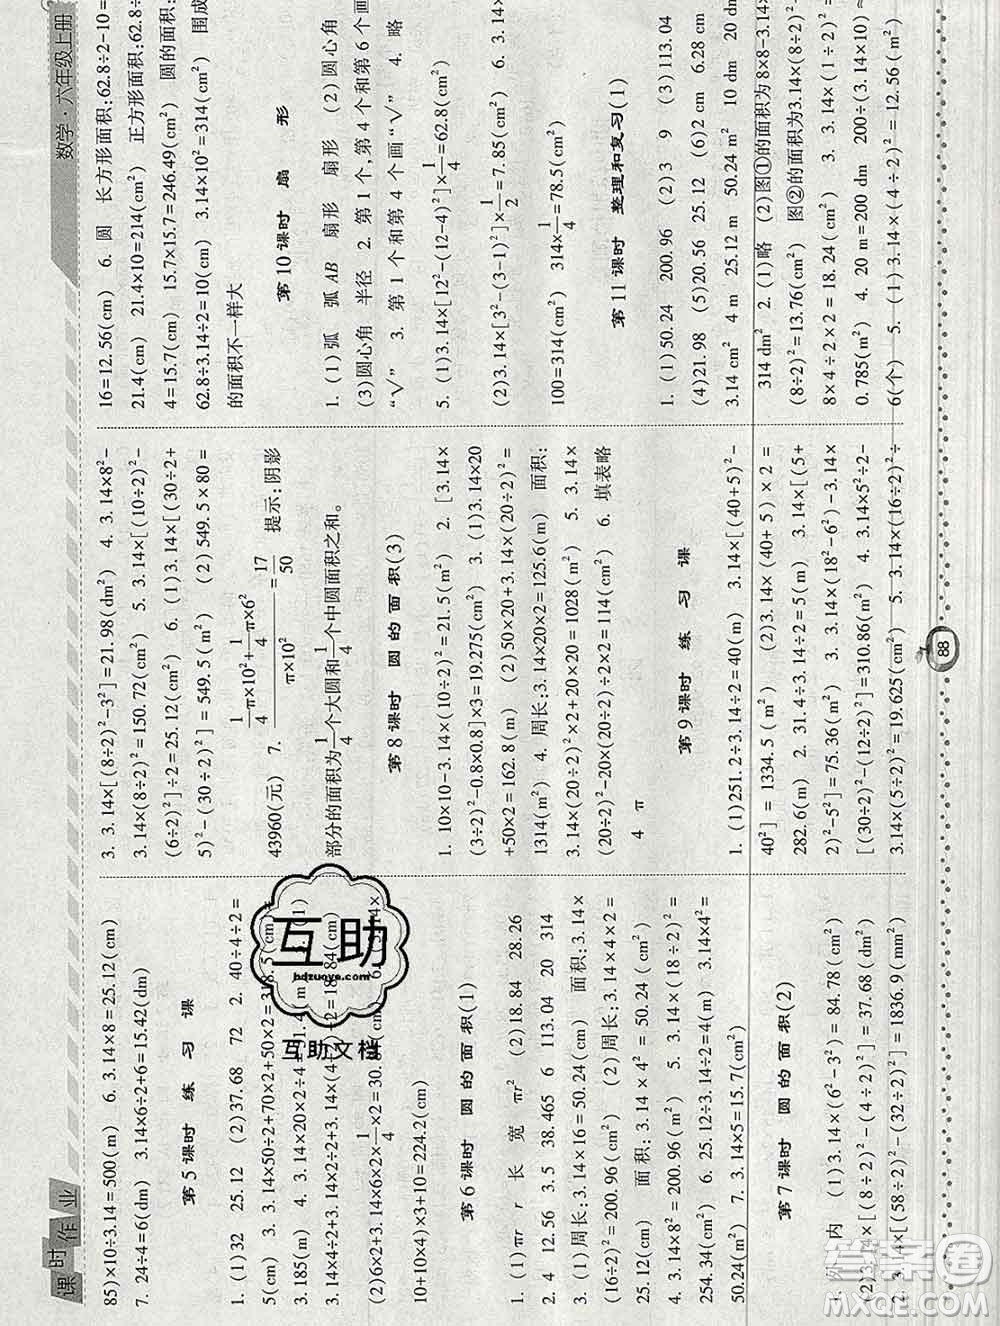 课时作业
数学·六年级上册
85)×10÷3.14=500(m) 6. 3.14×8=25.12(cm)
7. 24÷4=6(dm) 3.14×6÷2+6=15.42(dm)
第5课时 练 习 课
1. (1)32 25.12 (2)37.68 72 2. 40÷4÷2=
5(cm) 3. 3.14×50÷2+70×2+50×2=
3.185(m) 4. 3.14×20×2÷4
(2)6×2+3.14×6×2×1/4×2=30.
10+10×4)×3+10=224.2(cm)
第6课时 圆的面积(1)
1. (1)πr r 长 宽 πr² (2)18.84 28.26
4 12.56 3.5 38.465 6 113.04 20 314
3. (1)周长:3.14×16=50.24(cm) 面积:3.14×
(16÷2)²=200.96(cm²) (2)周长:3.14×4×2=
25.12(cm) 面积:3.14×4²=50.24(cm²)
4. 3.14×8²=200.96(m²) 5. 3.14×(18÷2)²=
254.34(cm²) 6. 25.12÷3.14÷2=4(m) 3.14×4²=
50.24(m²) 7. 3.14×5=15.7(cm²)
第7课时 圆的面积(2)
1. 外 内 (1)3.14×(6²-3²)=84.78(cm²)
(2)3.14×[(8÷2)²-(4÷2)²]=37.68(dm²)
2. 3.14×[(58÷2)²-(32÷2)²]=1836.9(mm²)
3. 3.14×[(8÷2)²-3²]=21.98(dm²) 4. 3.14×8²-
3.14×(8÷2)²=150.72(cm²) 5. 3.14×[(10÷2)²-
(6÷2)²]÷2=25.12(cm²) 6. (1)3.14×[(30÷2+
5)²-(30÷2)²]=549.5(m²) (2)549.5×80=
43960(元) 7. (1/4π×10²+1/4π×6²)/(π×10²)=17/50 提示:阴影
部分的面积为1/4个大圆和1/4个中圆面积之和。
第8课时 圆的面积(3)
1. 10×10-3.14×(10÷2)²=21.5(m²) 2. [3.14×
(3÷2)²-0.8×0.8]×3=19.275(cm²) 3. (1)3.14×20
+50×2=162.8(m) (2)50×20+3.14×(20÷2)²=
1314(m²) 4. 周长:3.14×20×2=125.6(m) 面积:
3.14×(20÷2)²×2+20×20=1028(m²) 5. 3.14×
(20÷2)²-20×(20÷2)÷2×2=114(cm²) 6. 填表略
4 π
第9课时 练 习 课
1. (1)251.2÷3.14÷2=40(m) 3.14×[(40+5)²-
40²]=1334.5(m²) (2)3.14×(40+5)×2=
282.6(m) 2. 31.4÷3.14÷2=5(m) 3.14×[(5+
2)²-5²]=75.36(m²) 3. 3.14×(18²-6²)-3.14×
[(30÷2)²-(12÷2)²]=310.86(m²) 4. 3.14×5²÷2-
3.14×(5÷2)²=19.625(cm²) 5. 3.14×(16÷2)²÷
16=12.56(cm) 6. 圆 长方形面积:62.8÷2-10=
21.4(cm) 21.4×10=214(cm²) 正方形面积:62.8÷
4=15.7(cm) 15.7×15.7=246.49(cm²) 圆的面积:
62.8÷3.14÷2=10(cm) 3.14×10²=314(cm²) 围成
的面积不一样大
第10课时 扇 形
1. (1)弧 弧AB 扇形 扇形 (2)圆心角
(3)圆心角 半径 2. 第1个,第4个和第6个画
“√” 3. 第1个和第4个画“√” 4. 略
5. (1)3.14×[12²-(12-4)²]×1/4=62.8(cm²)
(2)3.14×[3²-(3-1)²]×1/2=7.85(cm²) 6. 3.14×
100=314(cm²) 314×1/4=78.5(cm²)
第11课时 整理和复习(1)
1. (1)50.24 200.96 (2)3 9 (3)113.04
(4)21.98 (5)20.56 25.12 (6)2cm 6.28 cm
3.14 cm² 4 m 25.12 m 50.24 m² 10 dm 20 dm
314 dm² 2. (1)略 (2)图①的面积为8×8-3.14×
(8÷2)²=13.76(cm²) 图②的面积为3.14×(8÷2)²-
8×4÷2×2=18.24(cm²) 3. 3.14×(1÷2)²=
0.785(m²) 4. 20 m=200 dm 200÷(3.14×10)≈
6(个) 5. (1)3.14×(4÷2)²=12.56(m²)
88
互助
hdzuoye.com
互助文档
答案圈
MXQE.COM